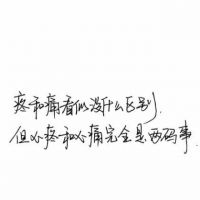 疼和痛看似没什么区别,
但心疼和心痛完全是两码事